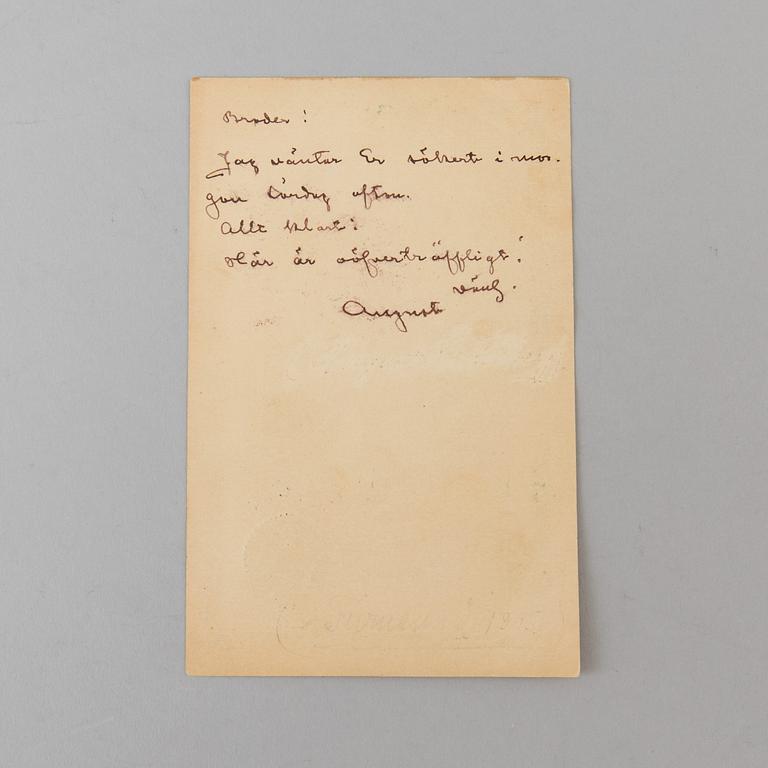 Broder!
Jag väntar Er säkert i mor-
gon Lördag afton.
Allt klart!
Här är oöfverträffligt!
Vänl.
August